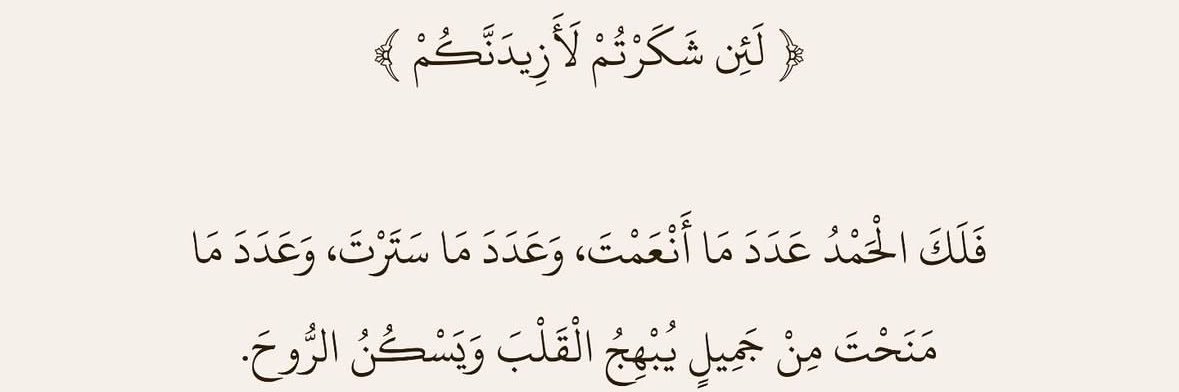 ﴿ لَئِن شَكَرْتُمْ لَأَزِيدَنَّكُمْ ﴾
فَلَكَ الْحَمْدُ عَدَدَ مَا أَنْعَمْتَ، وَعَدَدَ مَا سَتَرْتَ، وَعَدَدَ مَا
مَنَحْتَ مِنْ جَمِيلٍ يُبْهِجُ الْقَلْبَ وَيَسْكُنُ الرُّوحَ.